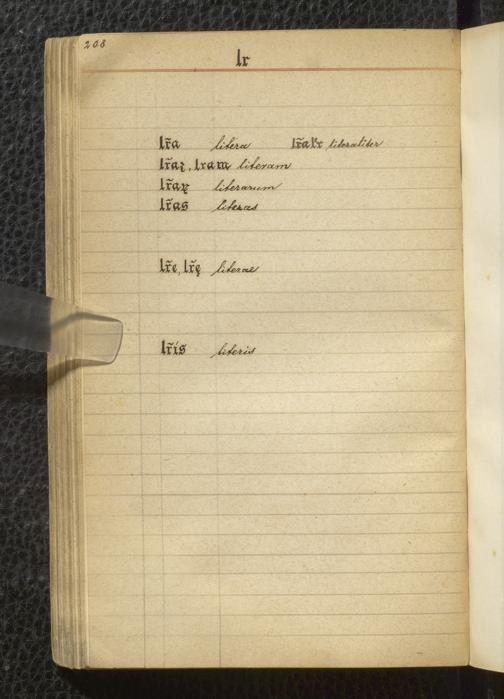 208
lr
lr̃a litera lr̃alr̃ literaliter
lr̃aʒ, lram literam
lr̃aꝝ literarum
lr̃as literas
lr̃e, lr̃ę literae
lr̃is literis